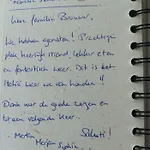 Lieve familie Brouwer,
We hebben genoten! Prachtige
plek, heerlijk strand, lekker eten
en fantastisch weer. Dit is het
Italië weer we van houden!!
Dank voor de goede zorgen en
tot een volgende keer.
- Merten
Saluti!
Marjan Sophie